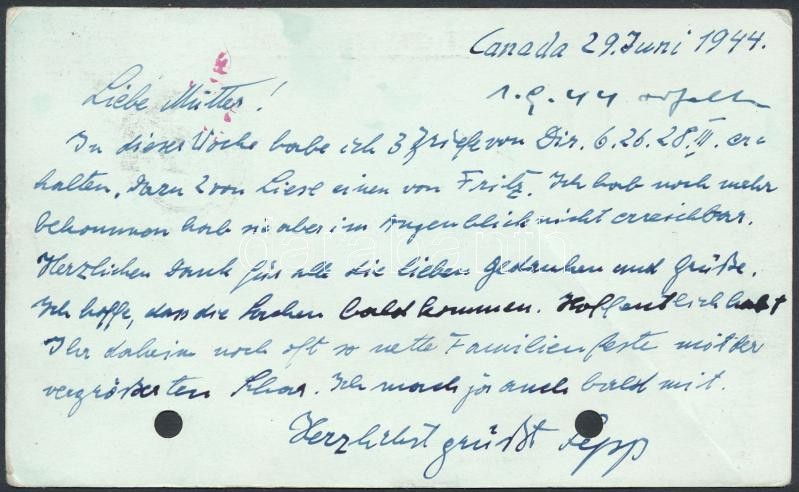 Canada 29. Juni 1944.
Liebe Mutter!
1.9.44
In dieser Woche habe ich 3 Briefe von Dir. 6. 26. 28. III. er-
halten, dazu 2 von Liesl einen von Fritz. Ich hab noch mehr
bekommen hab sie aber im Augenblick nicht erreichbar.
Herzlichen Dank für all die lieben Gedanken und Grüße.
Ich hoffe, dass die Sachen bald kommen. Hoffentlich habt
Ihr daheim noch oft so nette Familienfeste mit der
vergrößerten Schar. Ich mach ja auch bald mit.
Herzlichst grüßt Sepp